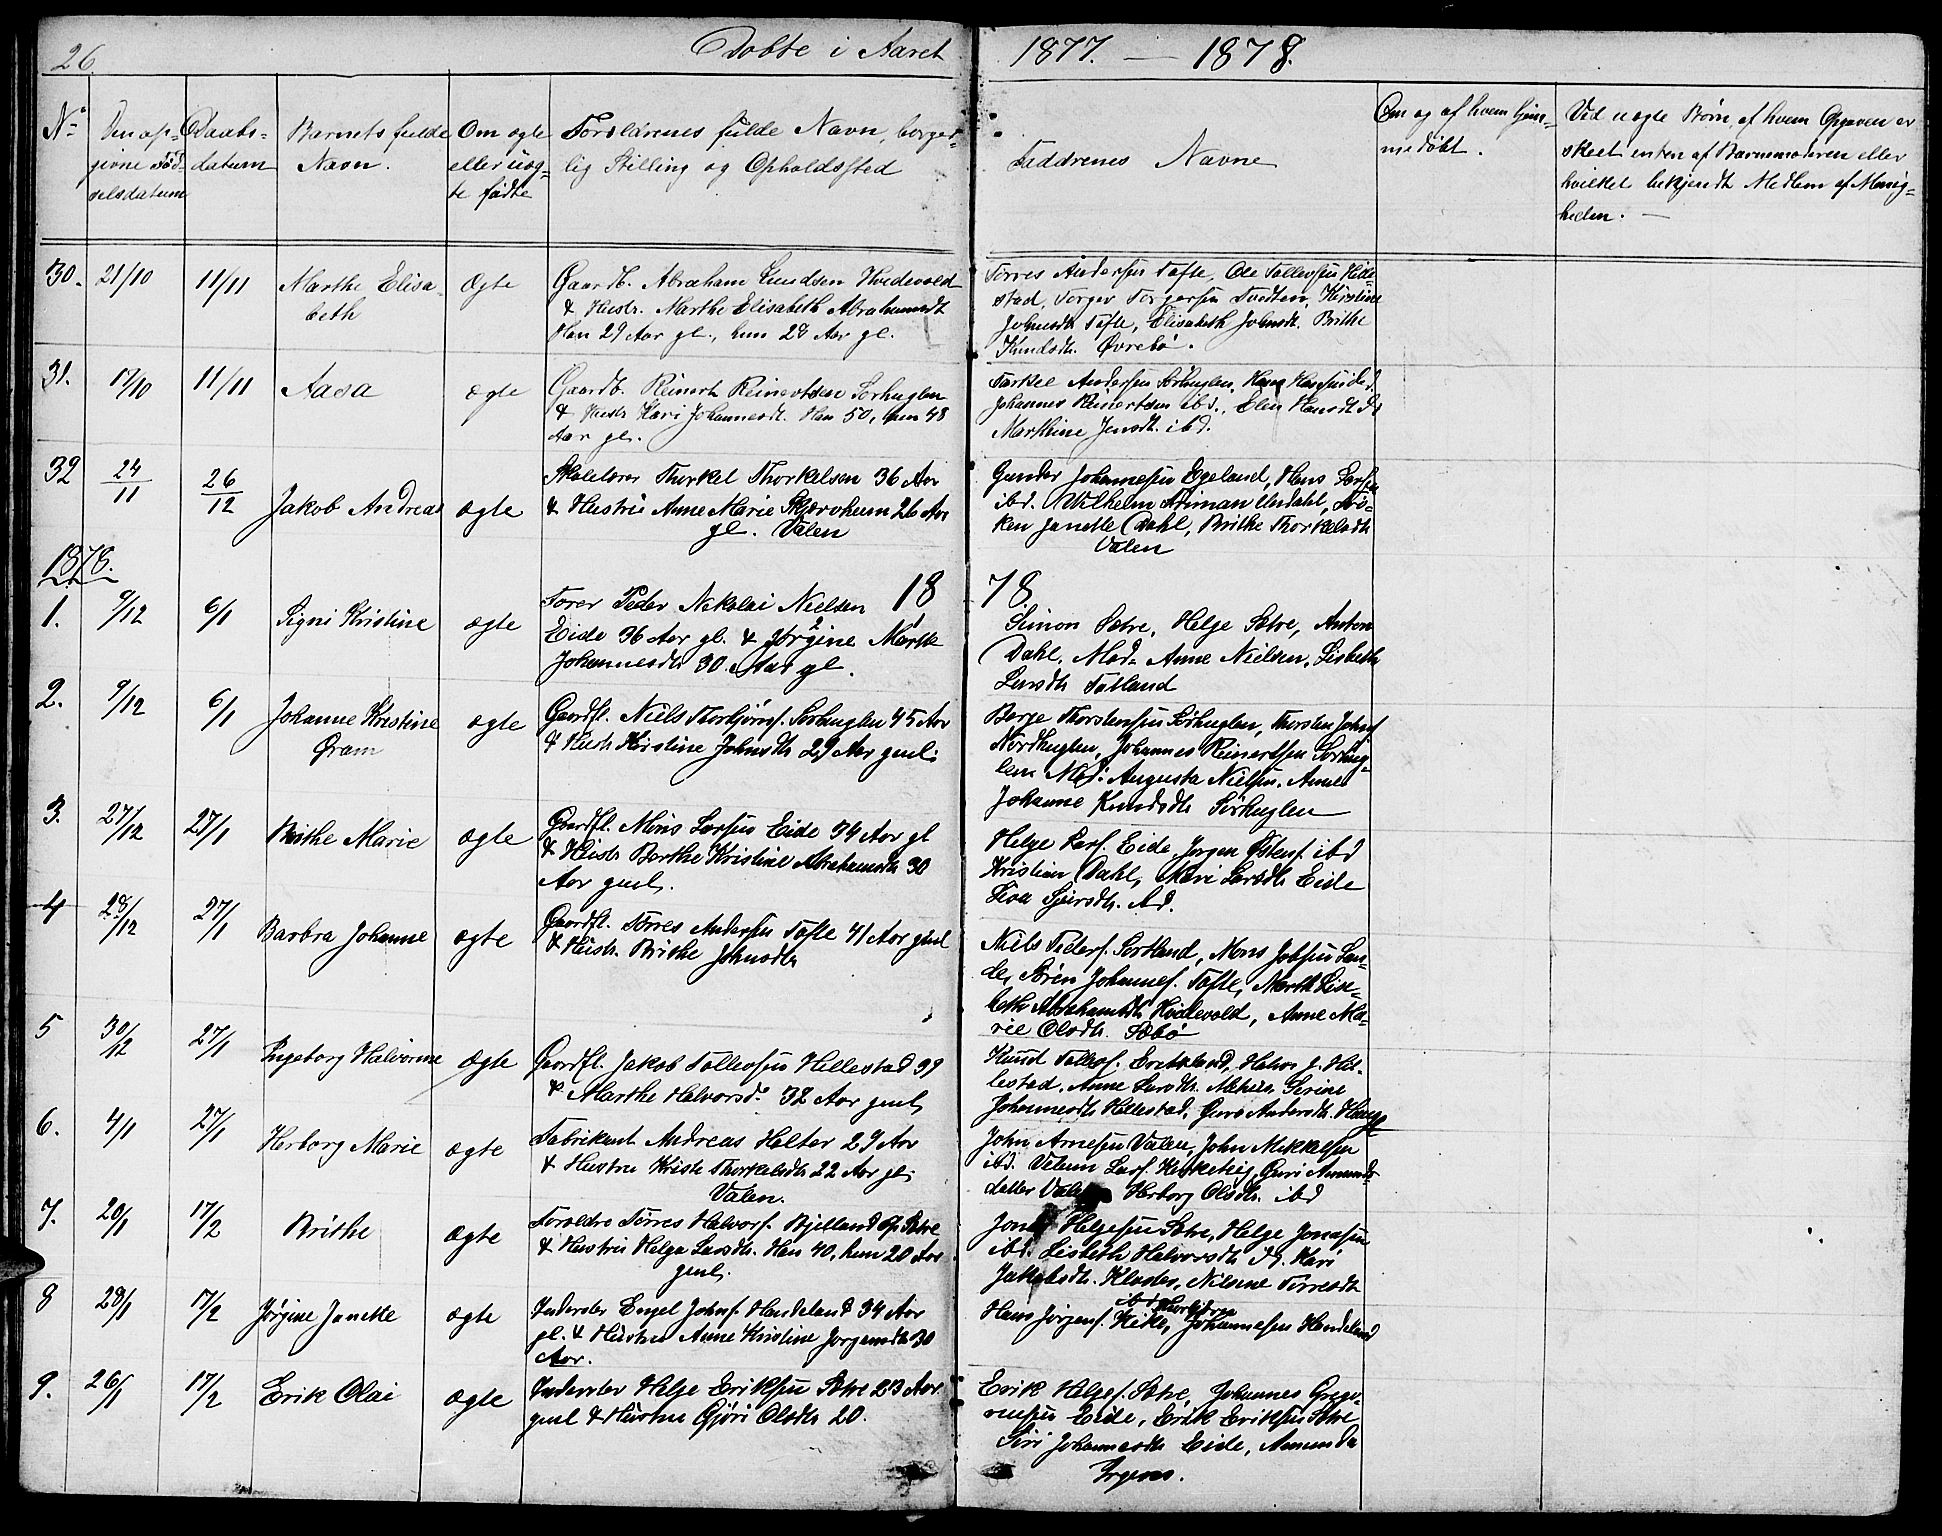 26. Døbte i Aaret 1877. — 1878.
No
Den op-
givne Fød-
selsdatum
Daabs-
datum
Barnets fulde
Navn.
Om ægte
eller uæg-
te fødte
Forældrenes fulde Navn, borger-
lig Stilling og Opholdssted
Faddrenes Navne
Om og af hvem hjem-
medøbt.
Ved uægte Børn, af hvem Opgaven er
skeet enten af Barnemoderen eller
hvilket bekjendt Medlem af Menig-
heden. —
30. 21/10 11/11 Marthe Elisa-
beth
Ægte
Gaardb. Abraham Hvidevold
& Hustr. Marthe Elisabeth Abrahamsdt
Han 29 Aar gl., hun 28 Aar gl.
Torres Andersen Tofte, Ole Tollevsen Hille-
stad, Torger Torgersen Tvedten, Kirstine
Johnsdt Tofte, Elisabeth Johnsdt. Brithe
Knudsdt. Øvrebø.
31. 17/10 11/11 Aasa ægte
Gaardb. Reinert Reinertsen Sørhuglen
& Hustr Kari Johannesdt. Han 50, hun 48
Aar gl.
Andersen Sørhuglen, Hans Hansen ibd.
Johannes Reinertsen ibd., Elen Hansdt
Marthine Jensdt. ibd.
32 24/11 26/12 Jakob Andreas ægte
Skolelærer Thorkel Thorkelsen 36 Aar
& Hustru Anne Marie Skjærvheim 26 Aar
gl. Valen
Gunder Johannesen Egeland, Hans Larsen
ibd. Wilhelm Undahl, Frø-
ken Janette Dahl, Brithe Thorkelsdt
Valen
1878. 18 78.
1. 9/12 6/1 Signi Kristine ægte
Fører Peder Nikolai Nielsen
Eide 36 Aar gl. & Jørgine Marthe
Johannesdt 30 Aar gl.
Simon Sætre, Helge Sætre, Anton
Dahl, Mad. Anne Nielsen, Lisbeth
Larsdt Tatland
2. 9/12 6/1 Johanne Kristine
Øram
ægte
Gaardfl. Niels Thorbjørnsf. Sørhuglen 45 Aar
& Hustr Kristine Johnsdt 29 Aar gml.
Børge Thorstensen Sørhuglen, Thorsten Johnsf
Nordhuglen, Johannes Reinertsen Sørhug-
len Md. Augusta Nielsen, Anne
Johanne Knudsdt Sørhuglen
3. 27/12 27/1 Brithe Marie ægte
Gaardfl. Mons Larsen Eide 34 Aar gl
& Hustr Berthe Kristine Abrahamsdt 30
Aar gml.
Helge Larsf. Eide, Jørgen Østensf. ibd
Kristian Dahl, Mari Larsdt Eide
Sjursdt. ibd.
4 28/12 27/1 Barbra Johanne ægte
Gaardfl. Torres Andersen Tofte 41 Aar gml
& Hustr. Brithe Johnsdt
Niels Pedersf. Sortland, Mons Jobsen Lan-
de, Søren Johannesf. Tofte, Marth Lise-
beth Abrahamsdt Hvidevold, Anne Ma-
rie Olsdt. Sæbø
5 30/12 27/1 Ingeborg Halvorine ægte
Gaardfl. Jakob Tollevsen Hellestad 39
& Marthe Halvorsd. 32 Aar gml.
Knud Tollefs. , Halvor J. Hil-
lestad, Anne Larsdt. Serine
Johannesdt Hellestad, Guro Andersdt. Hauge
6. 4/1 27/1 Herborg Marie ægte
Fabrikant Andreas Helter 29 Aar
& Hustru Kriste Thorkelsdt 22 Aar gl.
Valen.
John Arnesen Valen, John Mikkelsen
ibd. Larsf. Heskateig, Guri Amunds-
datter Valen Herborg Olsdt. ibd
7. 20/1 17/2 Brithe ægte
Forældre Torres Halvorsf. Bjelland Sætre
& Hustru Helga Larsdt. Han 40, hun 20 Aar
gml.
Jonas Helgesen Sætre, Helge Jonassen
ibd. Lisbeth Halvorsdt Kari
Jakobsdt. Kloster, Nilsine Torresdt
ibd
8 29/1 17/2 Jørgine Janette ægte
Inderster Engel Johnsf. Handeland 34 Aar
gl. & Hustru Anne Kristine Jørgensdt 30
Aar.
Hans Jørgensf. Johannesen Handeland
9. 26/1 17/2 Erik Olai ægte
Inderster Helge Eriksen Sætre 23 Aar
gml & Hustru Gjøri Olsdt 20.
Erik Helgesf. Sætre, Johannes Grego-
riussen Eide, Erik Eriksen Sætre
Siri Johannesdt Eide, Amunda